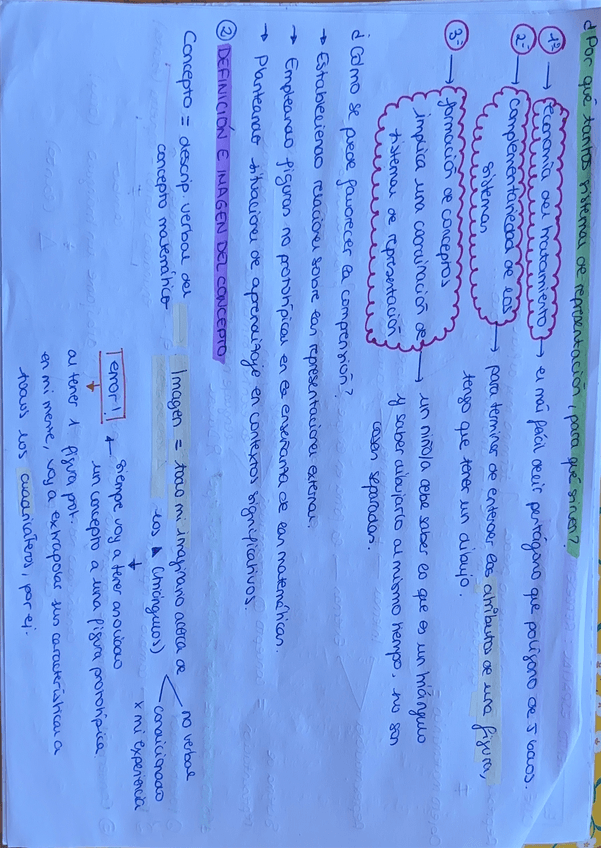 ¿Por qué tantos sistemas de representación, para qué sirven?
1º → economía del tratamiento → es más fácil decir pentágono que polígono de 5 lados.
2º → complementariedad de los sistemas → para terminar de entender los atributos de una figura,
tengo que tener un dibujo.
3º → formación de conceptos
implica una coordinación de → un niño/a debe saber lo que es un triángulo
sistemas de representación y saber dibujarlo al mismo tiempo, no son
cosas separadas.
¿Cómo se puede favorecer la comprensión?
→ Estableciendo relaciones sobre las representaciones externas.
→ Empleando figuras no prototípicas en la enseñanza de las matemáticas.
→ Planteando situaciones de aprendizaje en contextos significativos.
② DEFINICIÓN E IMAGEN DEL CONCEPTO
Concepto = descrip. verbal del
concepto matemático
Imagen = todo mi imaginario acerca de
los ▲ (triángulos)
no verbal
condicionado
x mi experiencia
¡error! ← siempre voy a tener anclado
un concepto a una figura prototípica.
al tener 1 figura prot.
en mi mente, voy a extrapolar sus características a
todos los cuadriláteros, por ej.